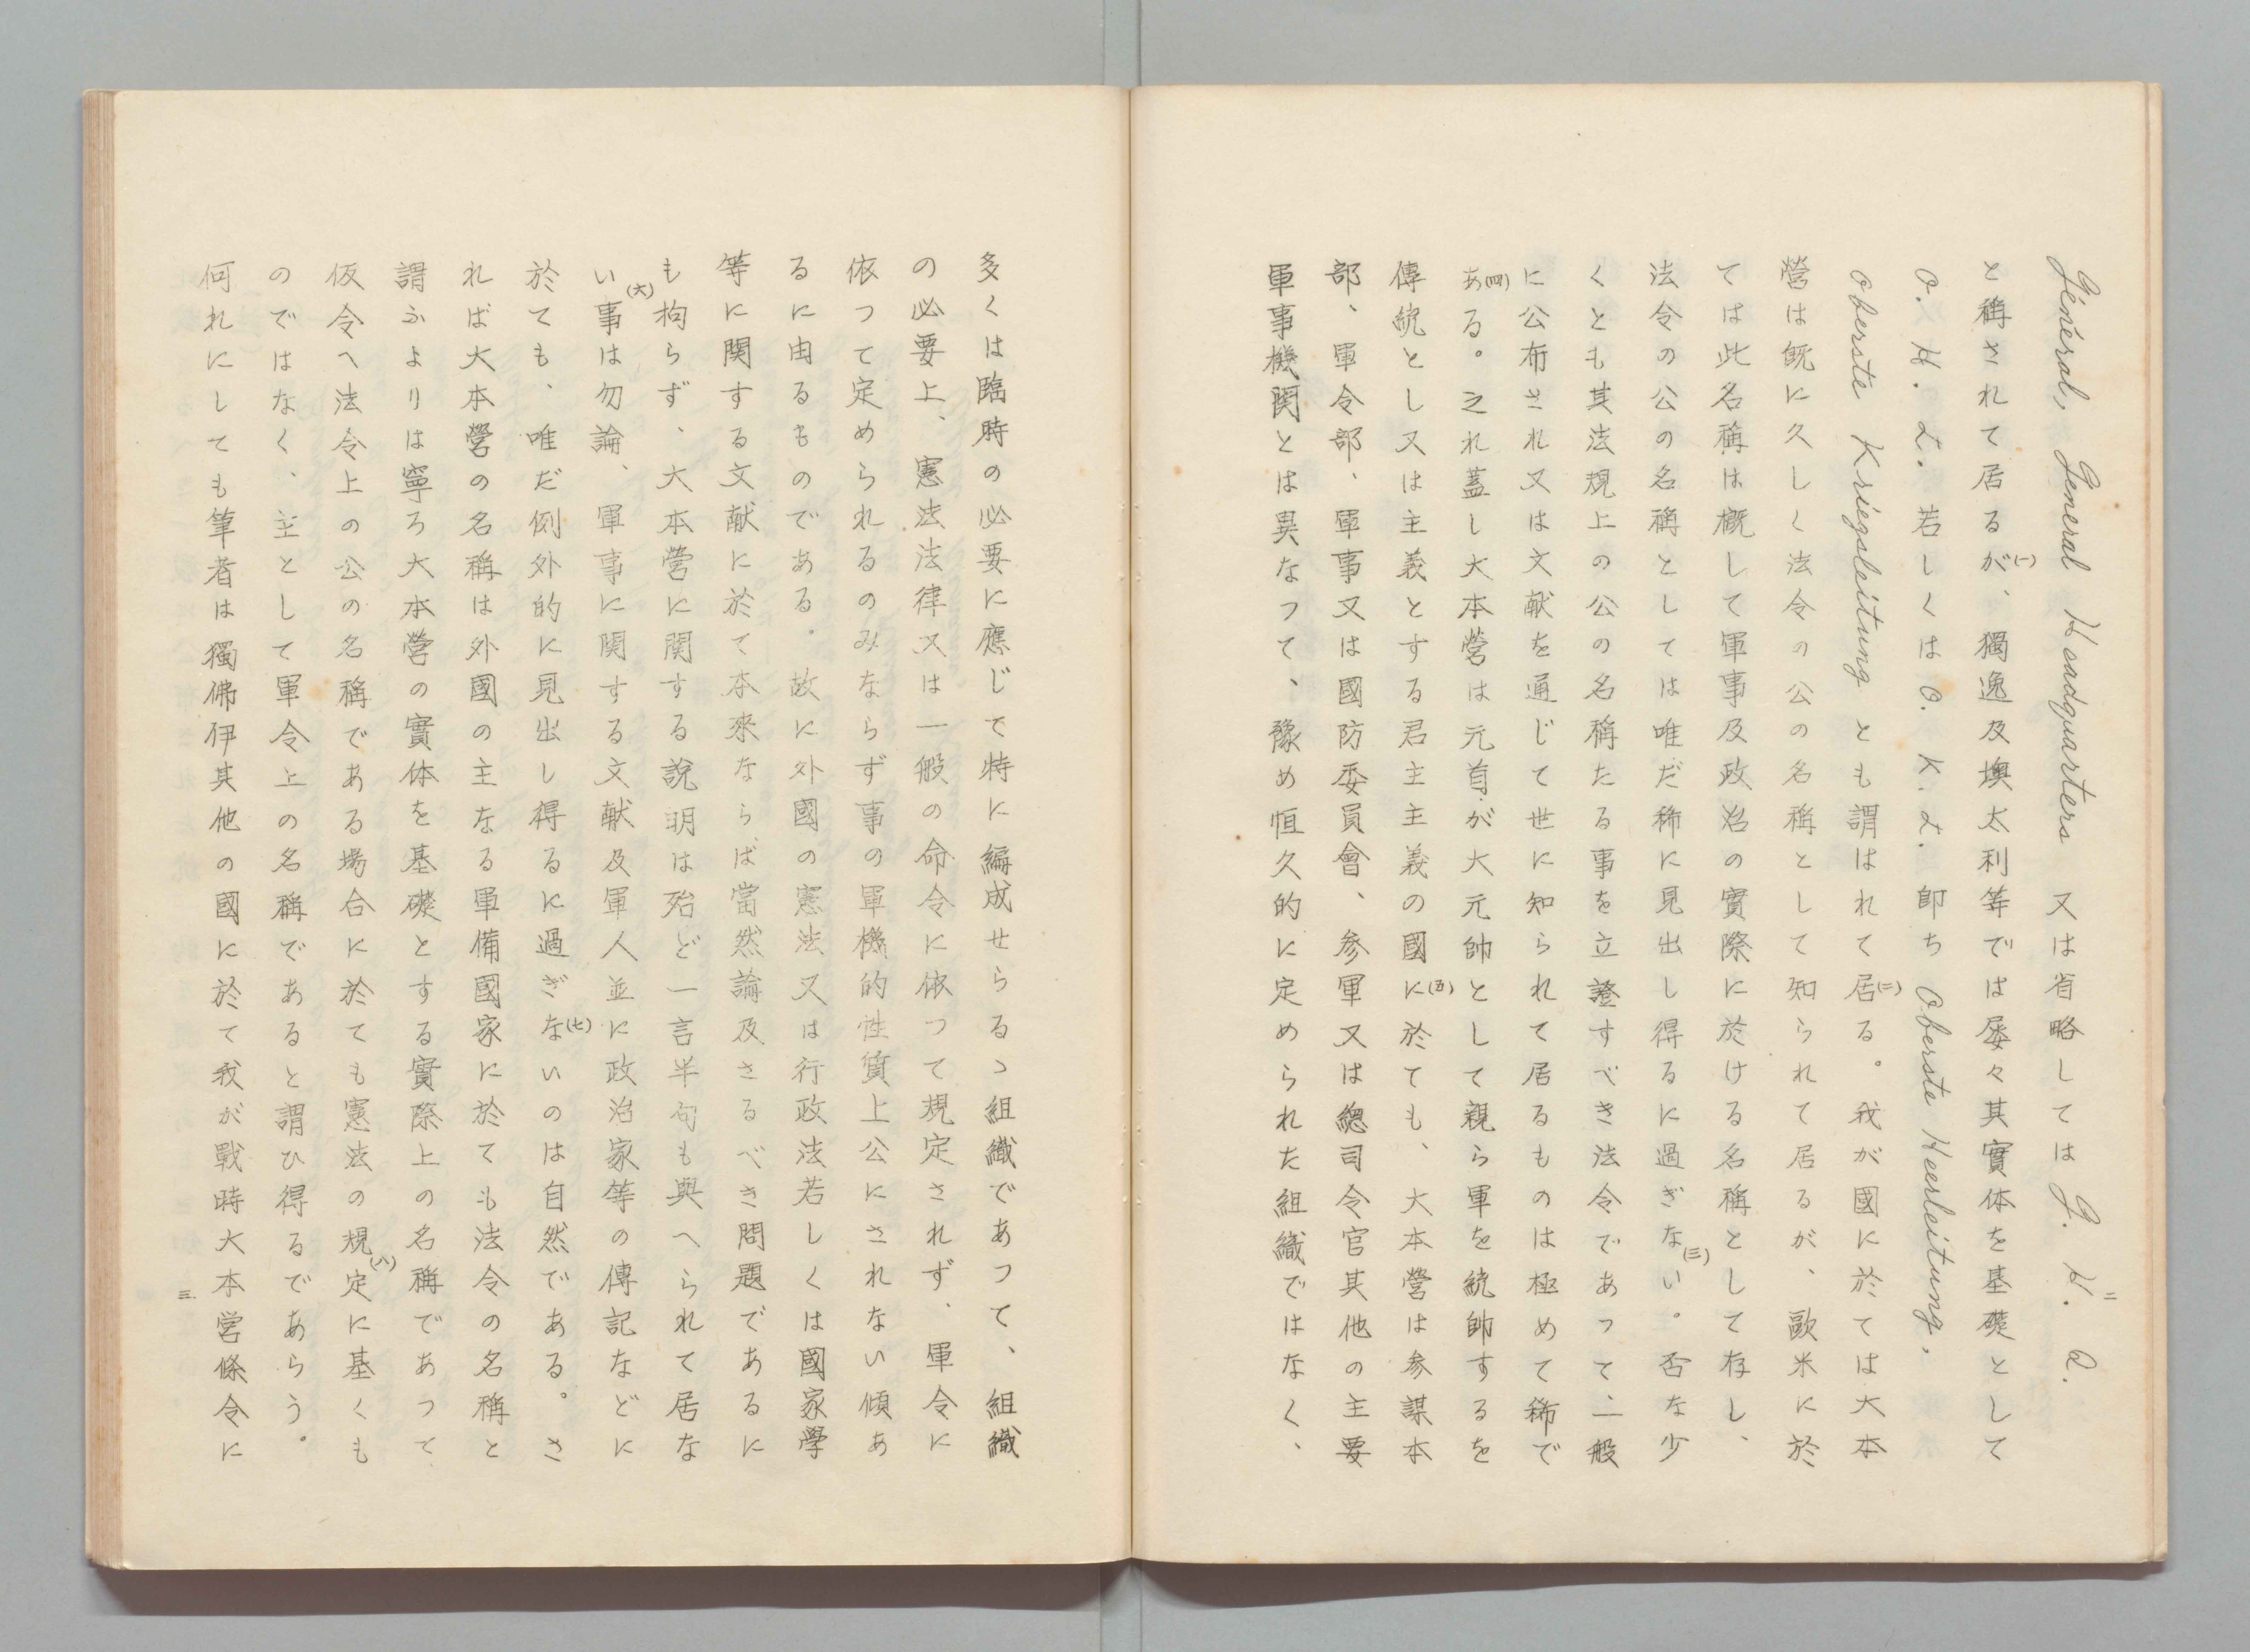 Général, General Headquarters 又は省略しては G. H. Q.
と稱されて居るが(一)、獨逸及墺太利等では屡々其實体を基礎として
O. H. L. 若しくは O. K. L. 卽ち Oberste Heerleitung,
Oberste Kriegsleitung とも謂はれて居(二)る。我が國に於ては大本
營は既に久しく法令の公の名稱として知られて居るが、歐米に於
ては此名稱は概して軍事及政治の實際に於ける名稱として存し、
法令の公の名稱としては唯だ稀に見出し得るに過ぎな(三)い。否な少
くとも其法規上の公の名稱たる事を立證すべき法令であつて、一般
に公布され又は文献を通じて世に知られて居るものは極めて稀で
あ(四)る。之れ蓋し大本營は元首が大元帥として親ら軍を統帥するを
傳統とし又は主義とする君主主義の國に(五)於ても、大本營は参謀本
部、軍令部、軍事又は國防委員會、参軍又は總司令官其他の主要
軍事機関とは異なつて、豫め恒久的に定められた組織ではなく、
二
多くは臨時の必要に應じて特に編成せらるゝ組織であつて、組織
の必要上、憲法法律又は一般の命令に依つて規定されず、軍令に
依つて定められるのみならず事の軍機的性質上公にされない傾あ
るに由るものである。故に外國の憲法又は行政法若しくは國家學
等に関する文献に於て本來ならば當然論及さるべき問題であるに
も拘らず、大本營に関する說明は殆ど一言半句も與へられて居な
い(六)事は勿論、軍事に関する文献及軍人並に政治家等の傳記などに
於ても、唯だ例外的に見出し得るに過ぎな(七)いのは自然である。さ
れば大本營の名稱は外國の主なる軍備國家に於ても法令の名稱と
謂ふよりは寧ろ大本營の實体を基礎とする實際上の名稱であつて
仮令へ法令上の公の名稱である場合に於ても憲法の規(八)定に基くも
のではなく、主として軍令上の名稱であると謂ひ得るであらう。
何れにしても筆者は獨佛伊其他の國に於て我が戰時大本営條令に
三